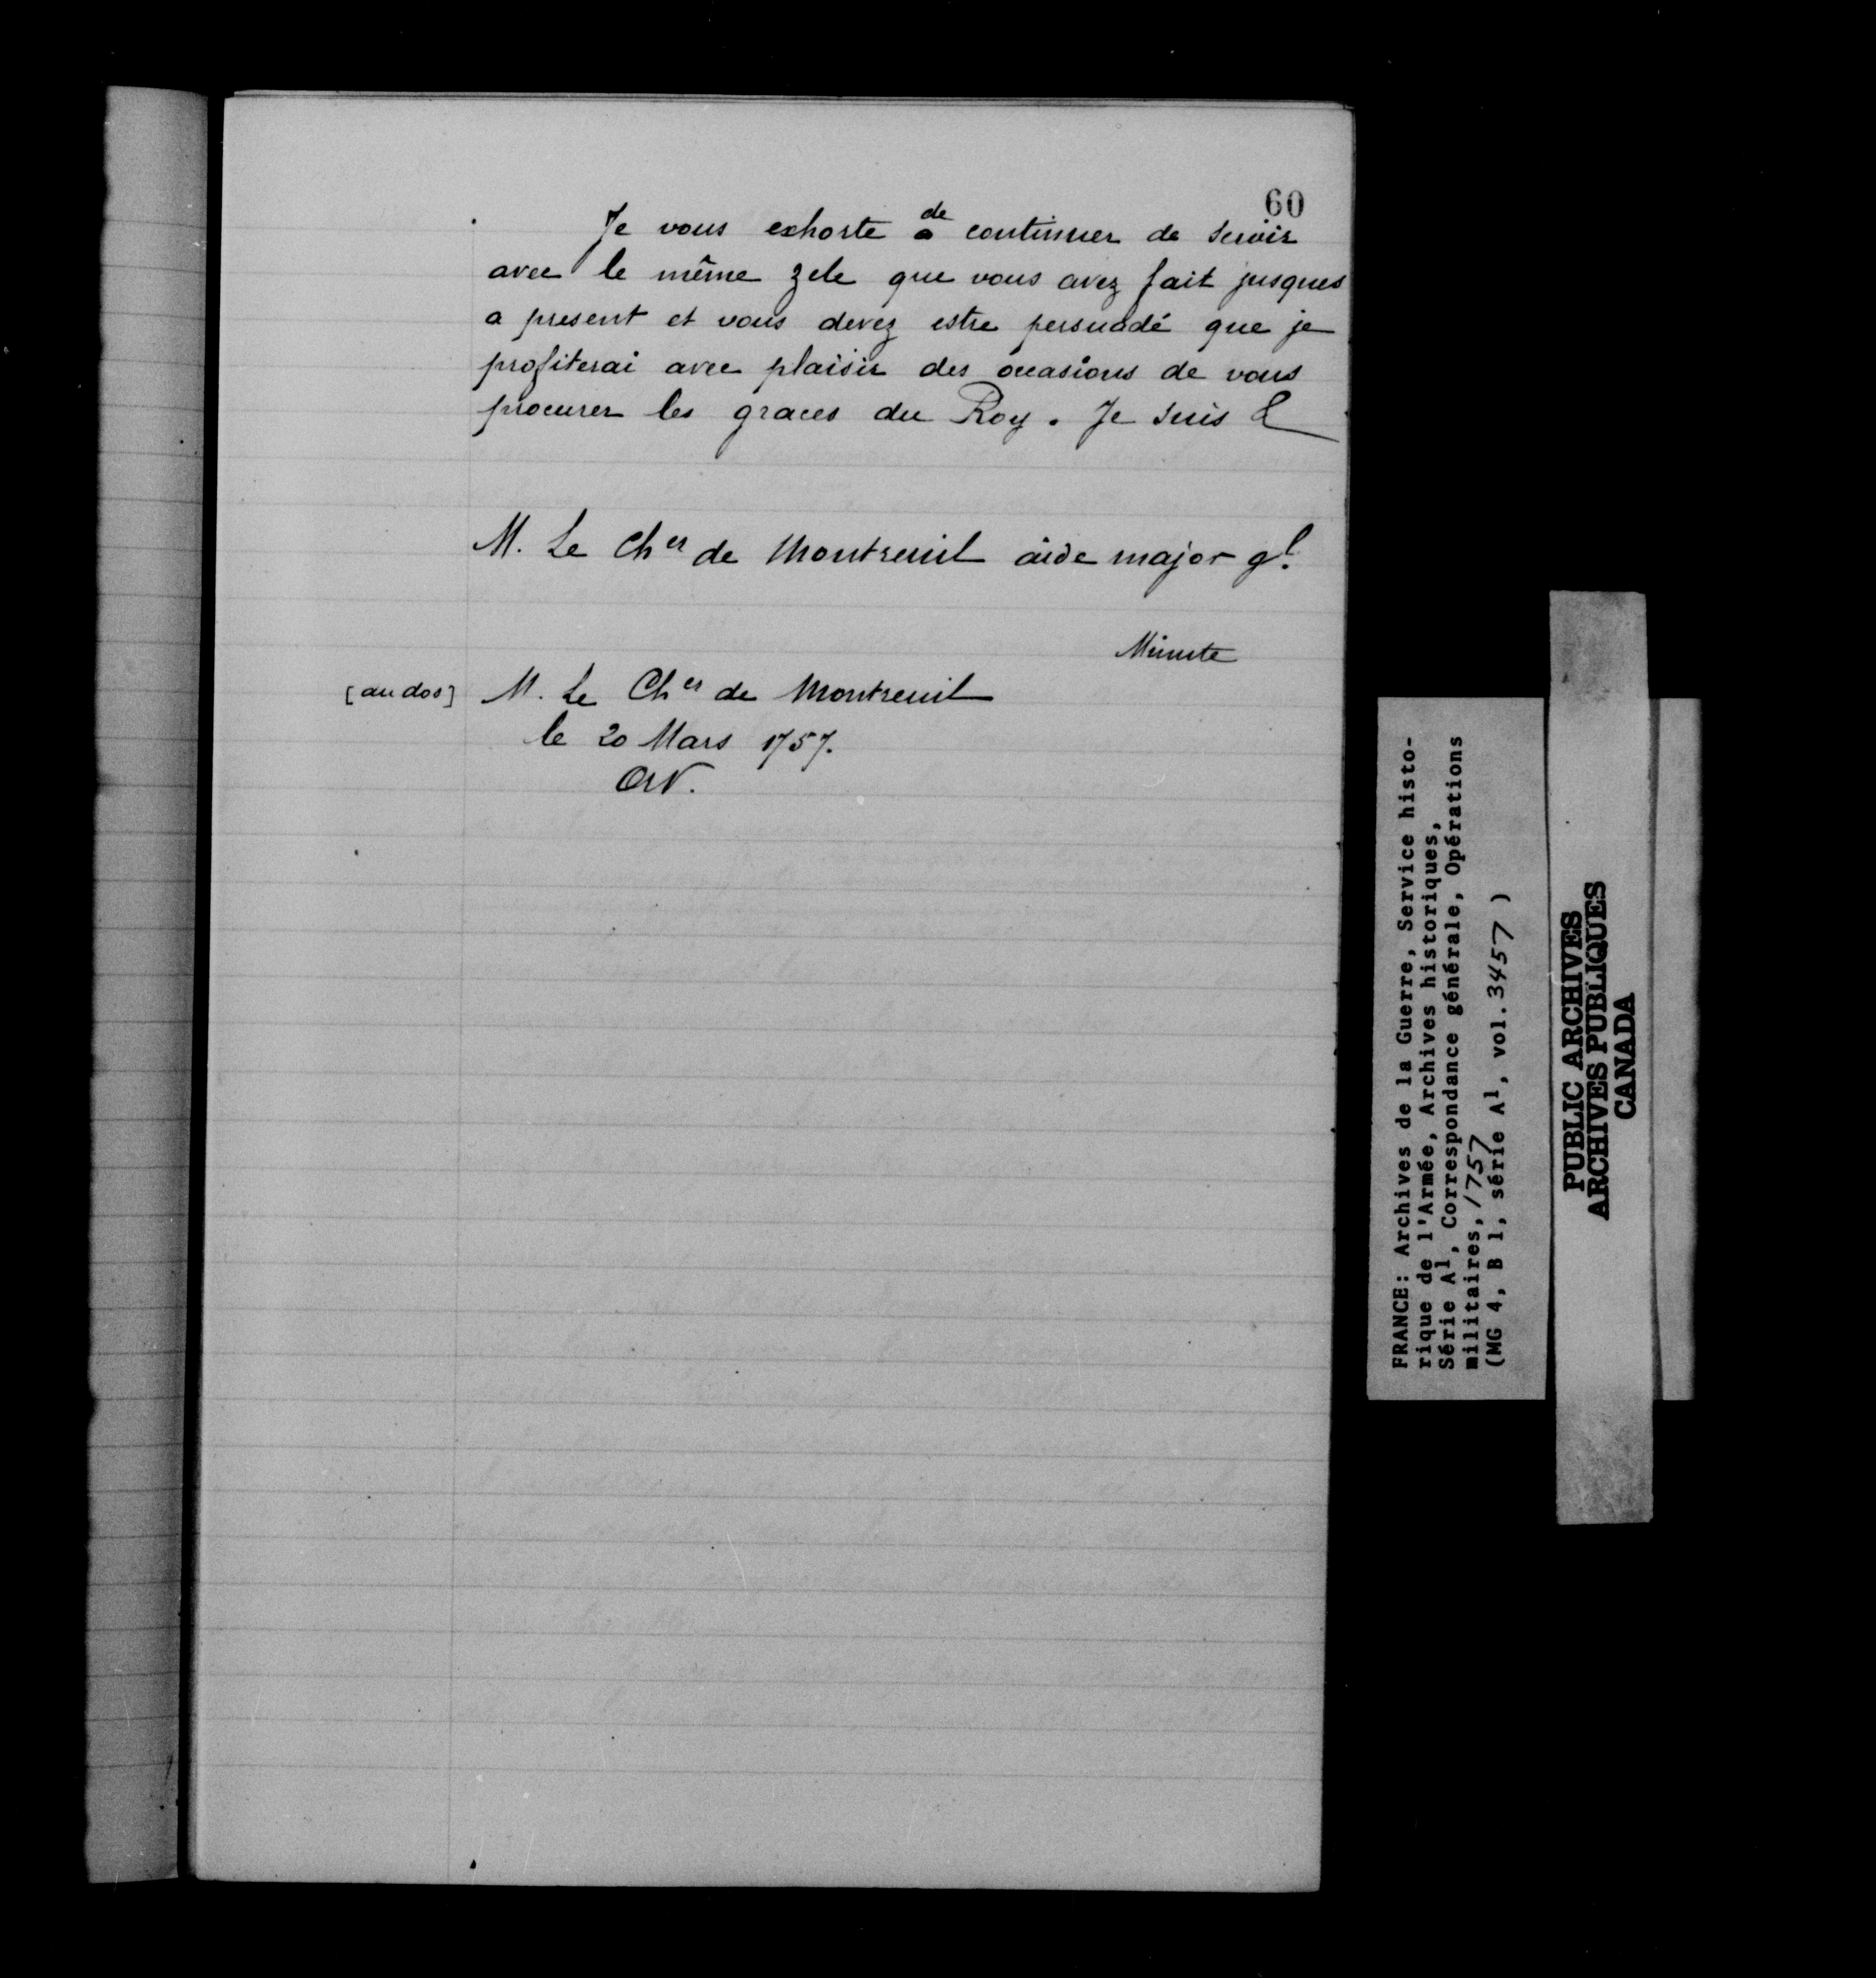 60
Je vous exhorte de a continuer de servir
avec le même zele que vous avez fait jusques
a present et vous devez estre persuadé que je
profiterai avec plaisir des occasions de vous
procurer les graces du Roy. Je suis &
M. Le Cher de Montreuil aide major gl.
Minute
[au dos] M. Le Cher de Montreuil
le 20 Mars 1757.
FRANCE: Archives de la Guerre, Service histo-
rique de l'Armée, Archives historiques,
Série A1, Correspondance générale, Opérations
militaires, 1757
(MG 4, B 1, série A1, vol. 3457 )
PUBLIC ARCHIVES
ARCHIVES PUBLIQUES
CANADA